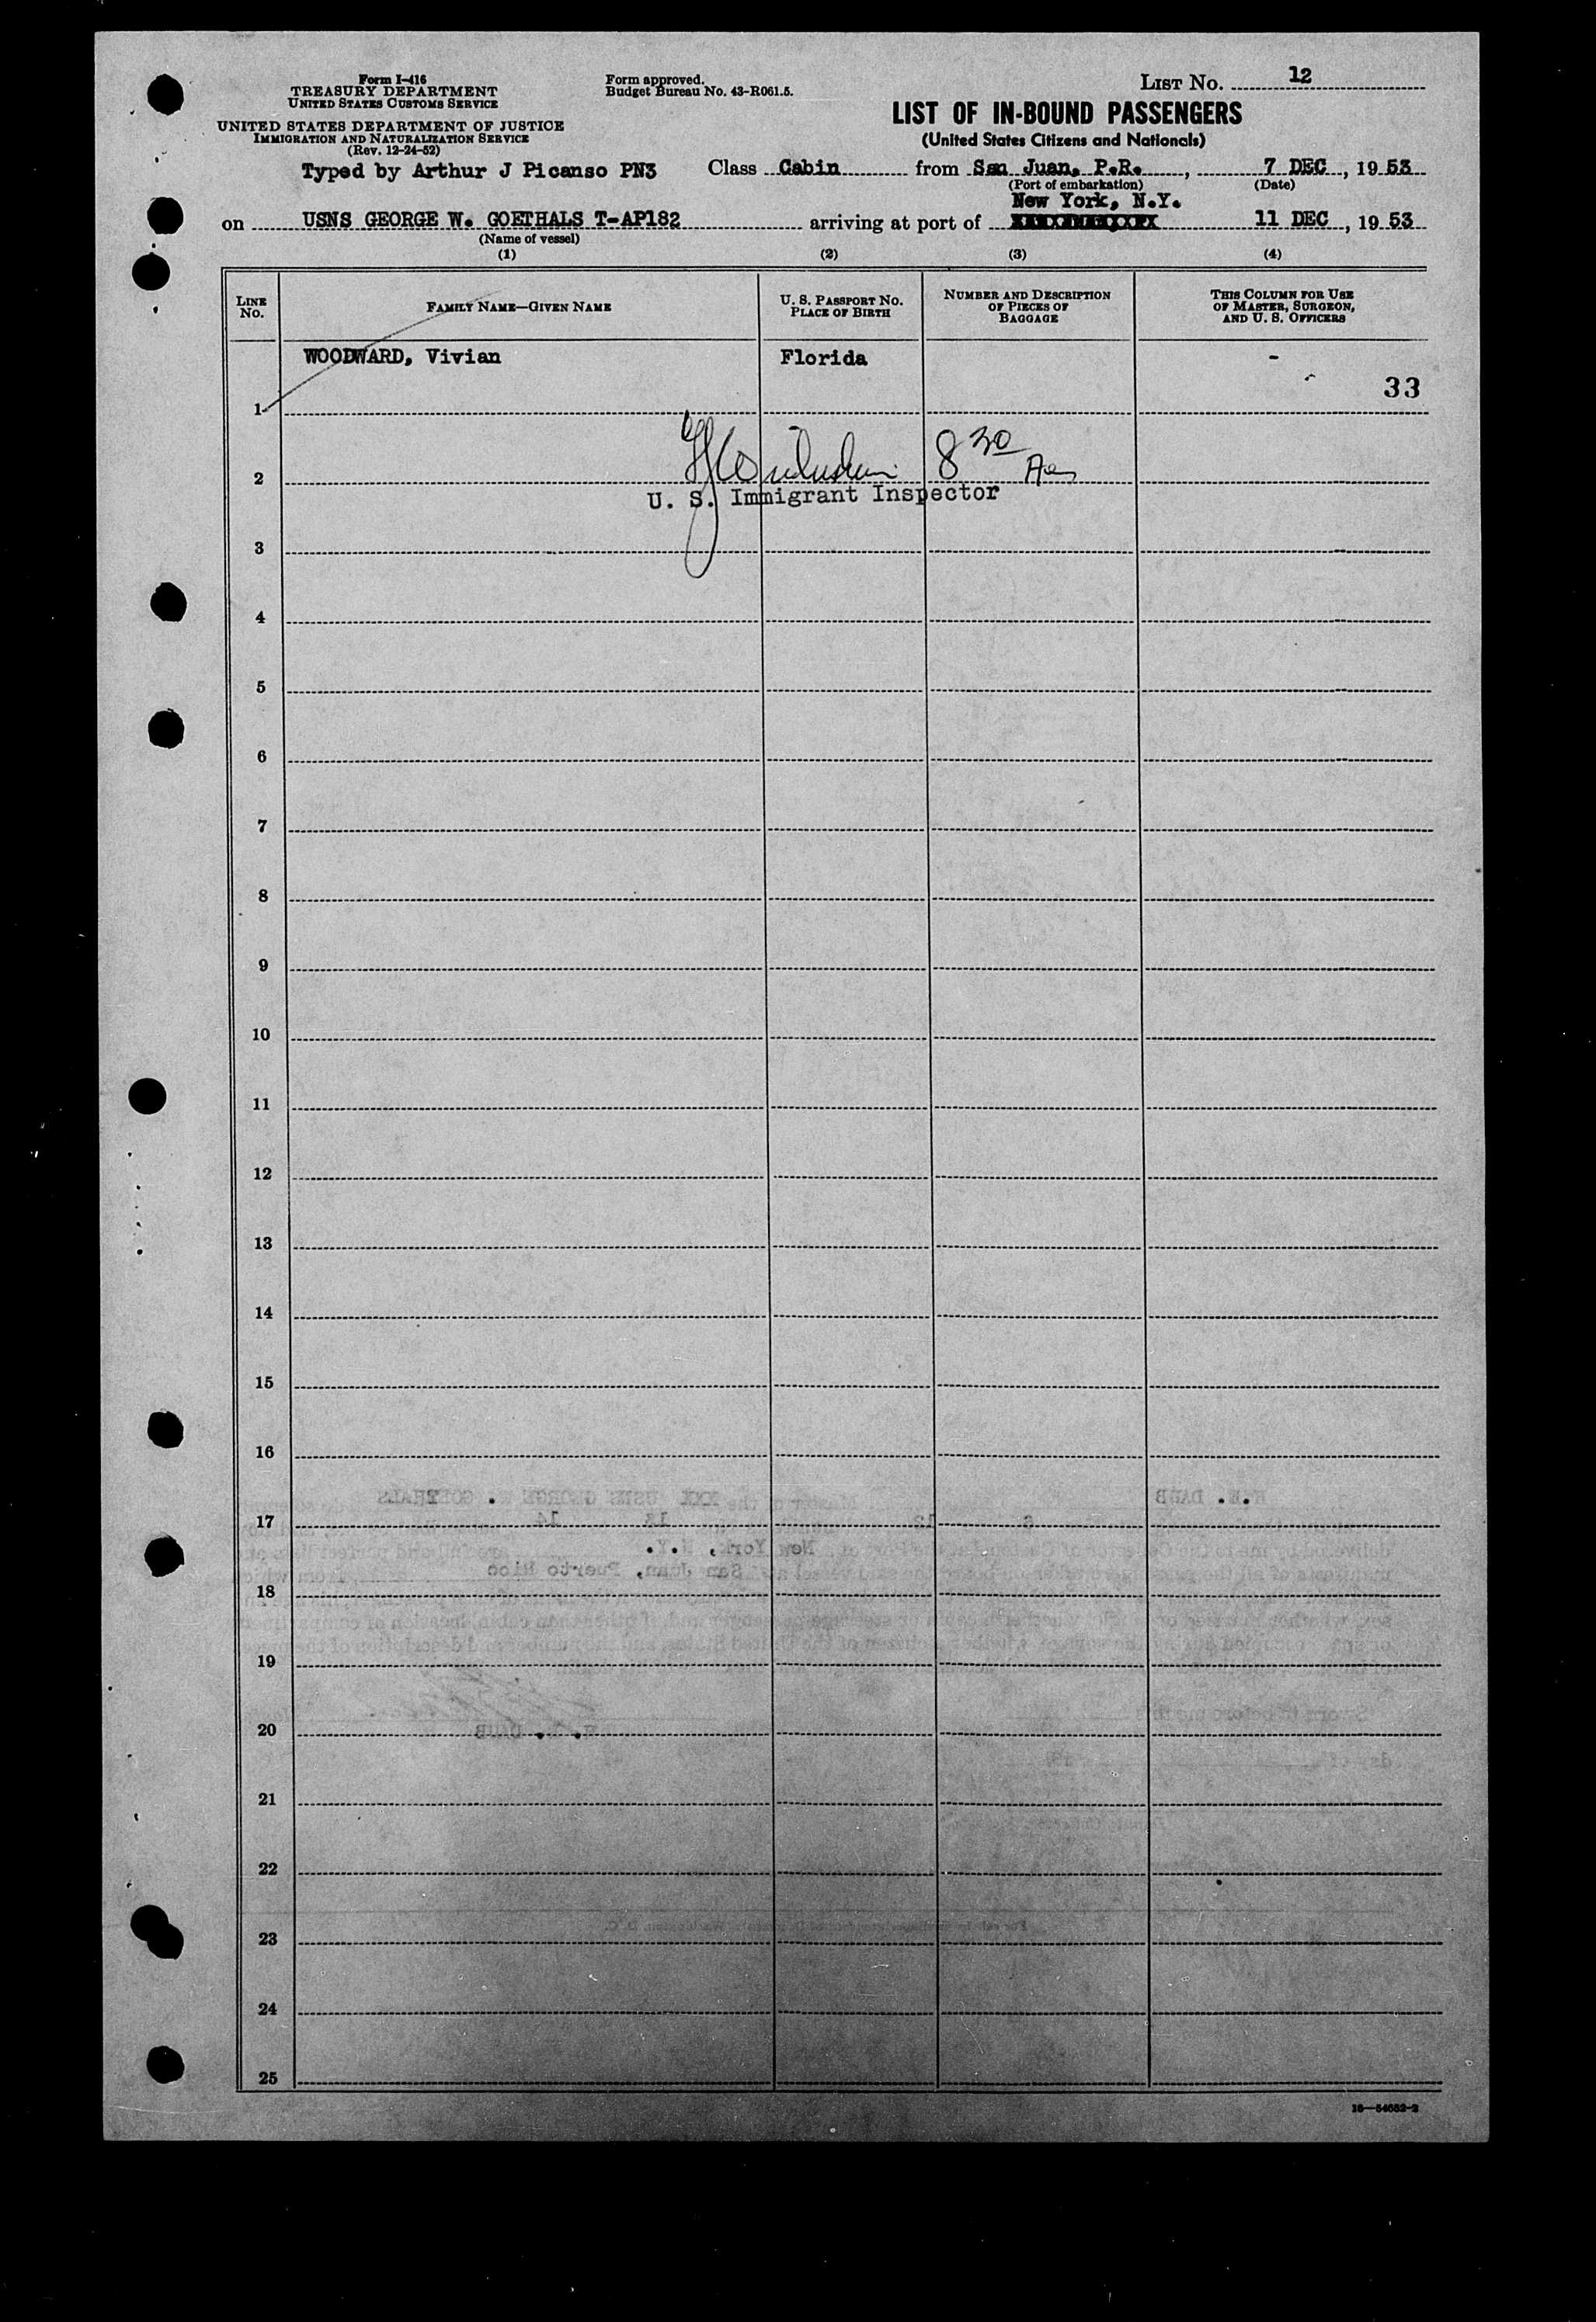 Form I-416
TREASURY DEPARTMENT
UNITED STATES CUSTOMS SERVICE
UNITED STATES DEPARTMENT OF JUSTICE
IMMIGRATION AND NATURALIZATION SERVICE
(Rev. 12-24-52)
Form approved.
Budget Bureau No. 43-R061.5.
LIST NO. 12
LIST OF IN-BOUND PASSENGERS
(United States Citizens and Nationals)
Typed by Arthur J Picanso PN3 Class Cabin from San Juan, P.R., 7 DEC, 19 53
(Port of embarkation) (Date)
New York, N.Y.
on USNS GEORGE W. GOETHALS T-AP182 arriving at port of 11 DEC, 19 53
(Name of vessel)
(1) (2) (3) (4)
LINE NO. FAMILY NAME—GIVEN NAME U. S. PASSPORT NO. PLACE OF BIRTH NUMBER AND DESCRIPTION OF PIECES OF BAGGAGE THIS COLUMN FOR USE OF MASTER, SURGEON, AND U. S. OFFICERS
WOODWARD, Vivian Florida -
33
1
8 30 Am
2
U. S. Immigrant Inspector
3
4
5
6
7
8
9
10
11
12
13
14
15
16
17
18
19
20
21
22
23
24
25
16—54682-2